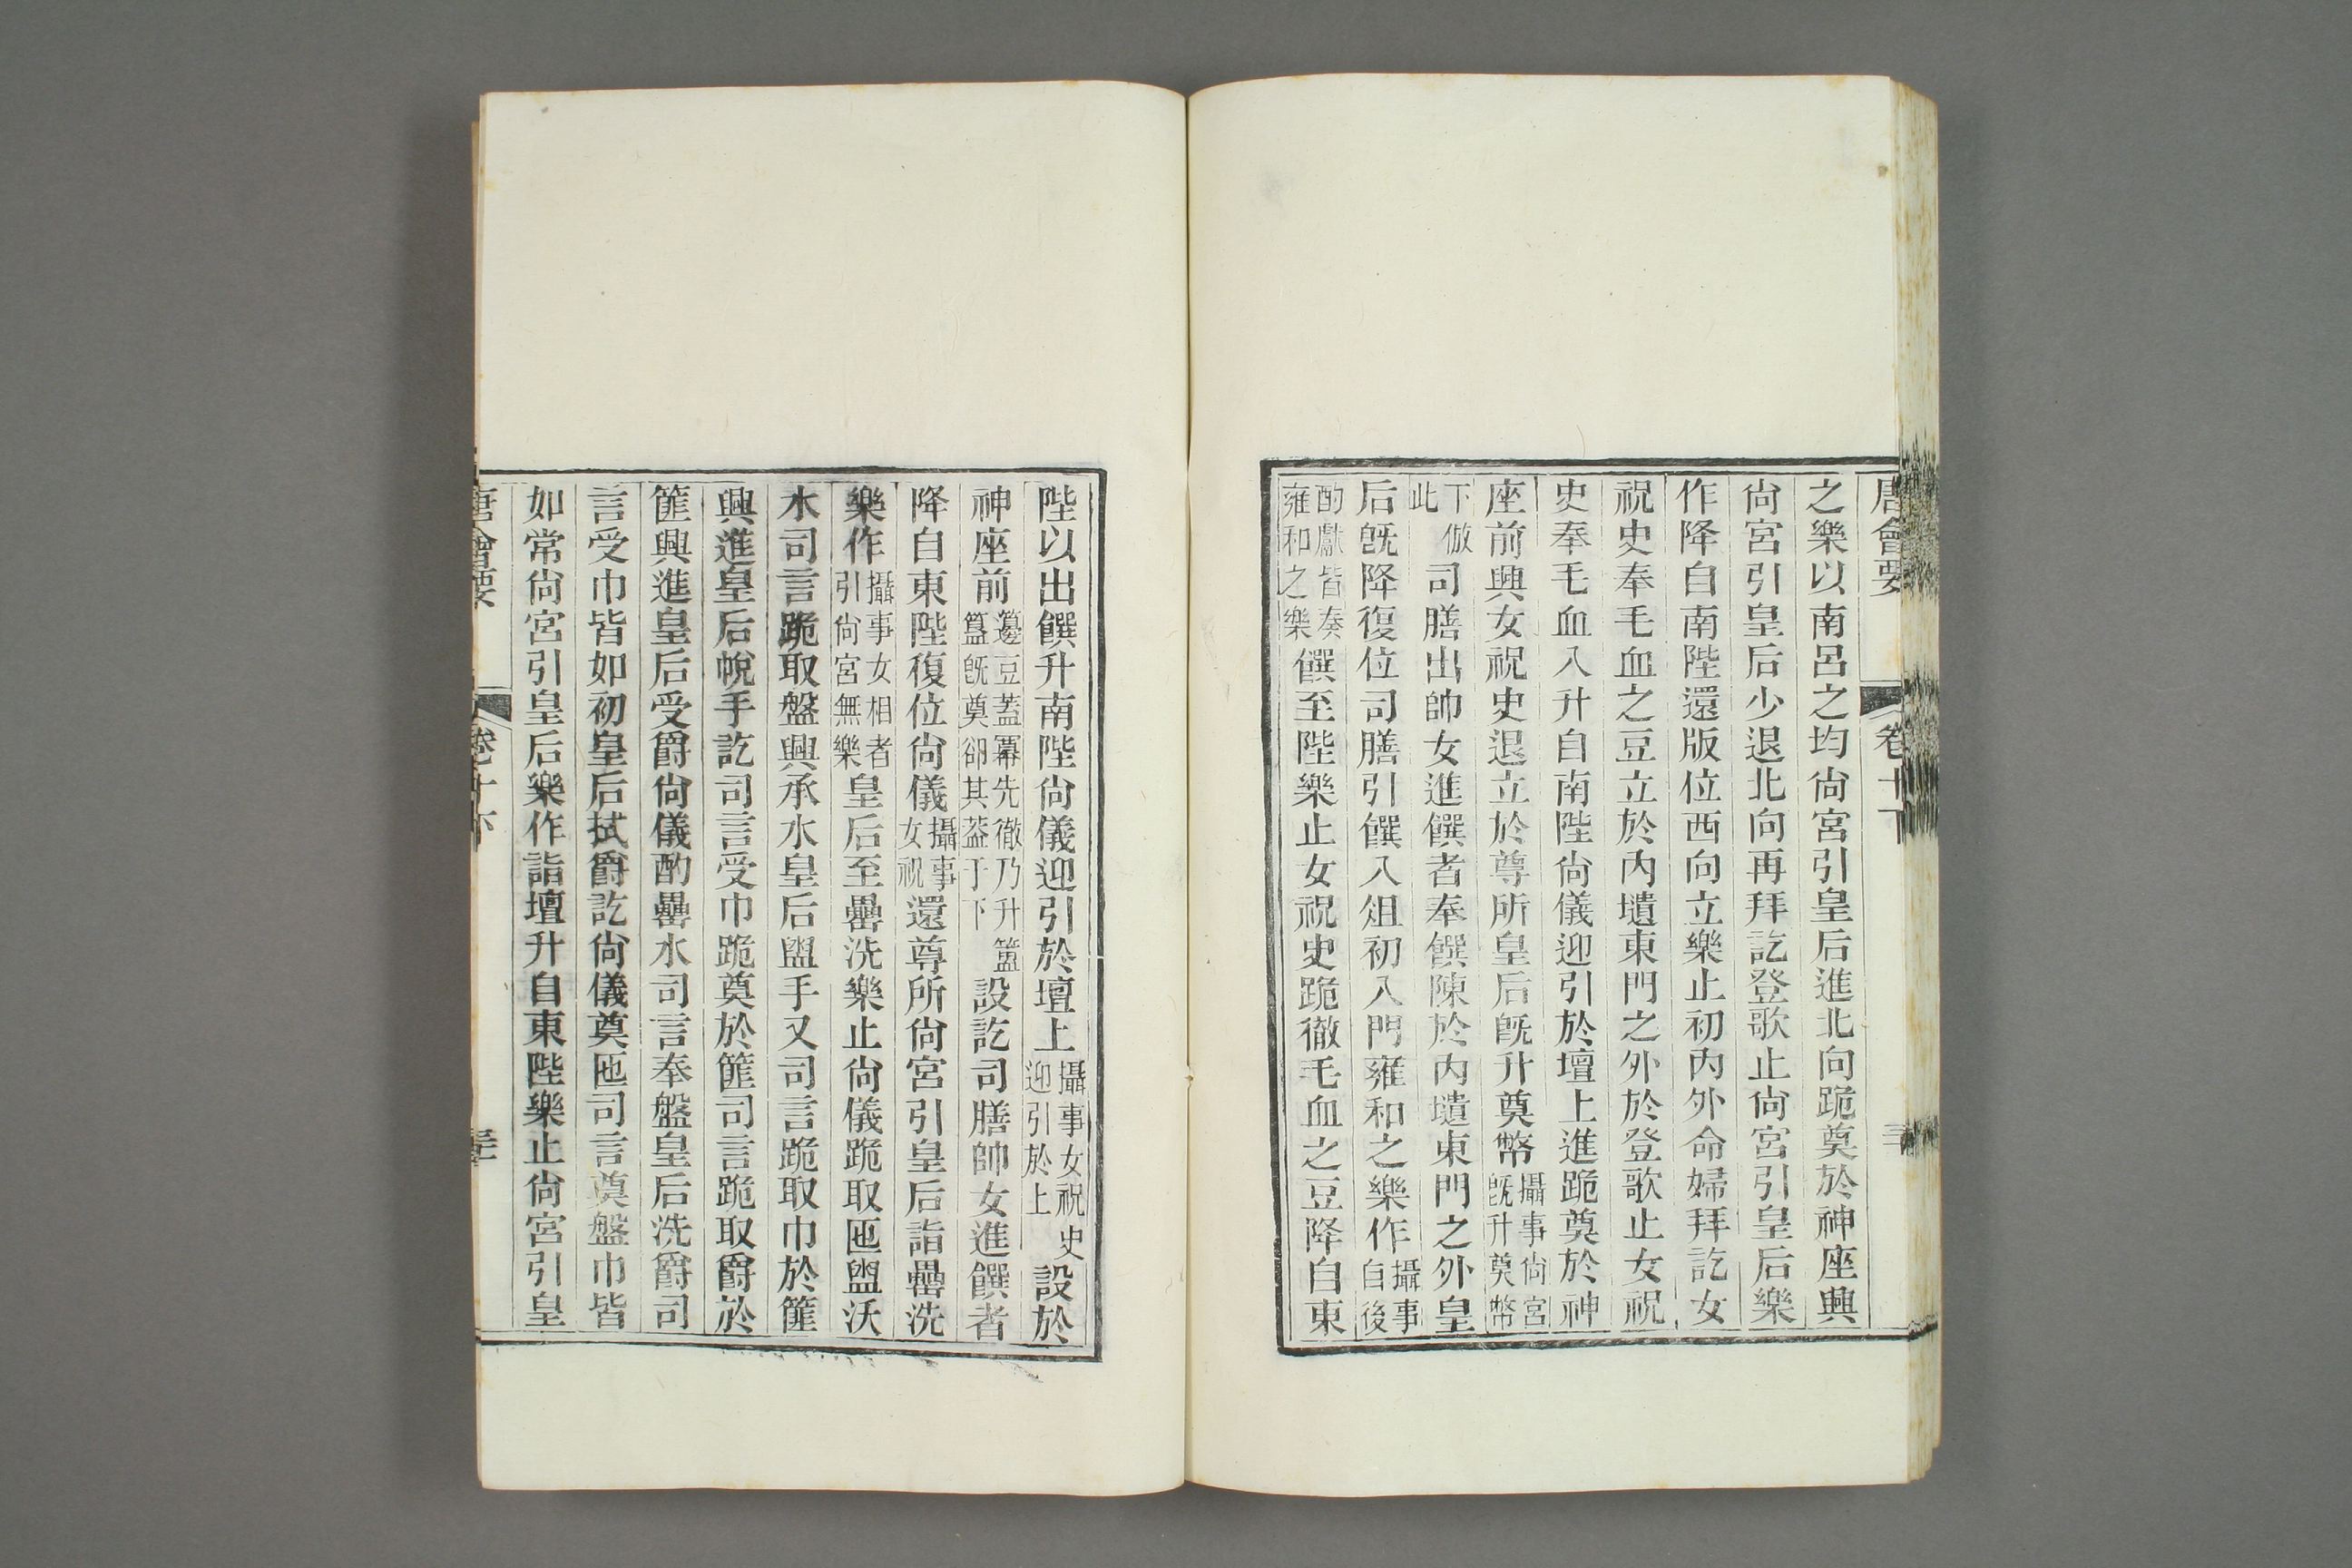 唐會要 卷十下
之樂以南呂之均尙宮引皇后進北向跪奠於神座興
尙宮引皇后少退北向再拜訖登歌止尙宮引皇后樂
作降自南陛還版位西向立樂止初內外命婦拜訖女
祝史奉毛血之豆立於內壝東門之外於登歌止女祝
史奉毛血入升自南陛尙儀迎引於壇上進跪奠於神
座前興女祝史退立於尊所皇后旣升奠幣攝事尙宮旣升奠幣
下倣此司膳出帥女進饌者奉饌陳於內壝東門之外皇
后旣降復位司膳引饌入俎初入門雍和之樂作攝事自後
酌獻皆奏雍和之樂饌至陛樂止女祝史跪徹毛血之豆降自東
陛以出饌升南陛尙儀迎引於壇上攝事女祝史迎引於上設於
神座前籩豆蓋冪先徹乃升簠簋旣奠卻其蓋于下設訖司膳帥女進饌者
降自東陛復位尙儀攝事女祝還尊所尙宮引皇后詣罍洗
樂作攝事女相者引尙宮無樂皇后至罍洗樂止尙儀跪取匜盥沃
水司言跪取盤興承水皇后盥手又司言跪取巾於篚
興進皇后帨手訖司言受巾跪奠於篚司言跪取爵於
篚興進皇后受爵尙儀酌罍水司言奉盤皇后洗爵司
言受巾皆如初皇后拭爵訖尙儀奠匜司言奠盤巾皆
如常尙宮引皇后樂作詣壇升自東陛樂止尙宮引皇
唐會要 卷十下